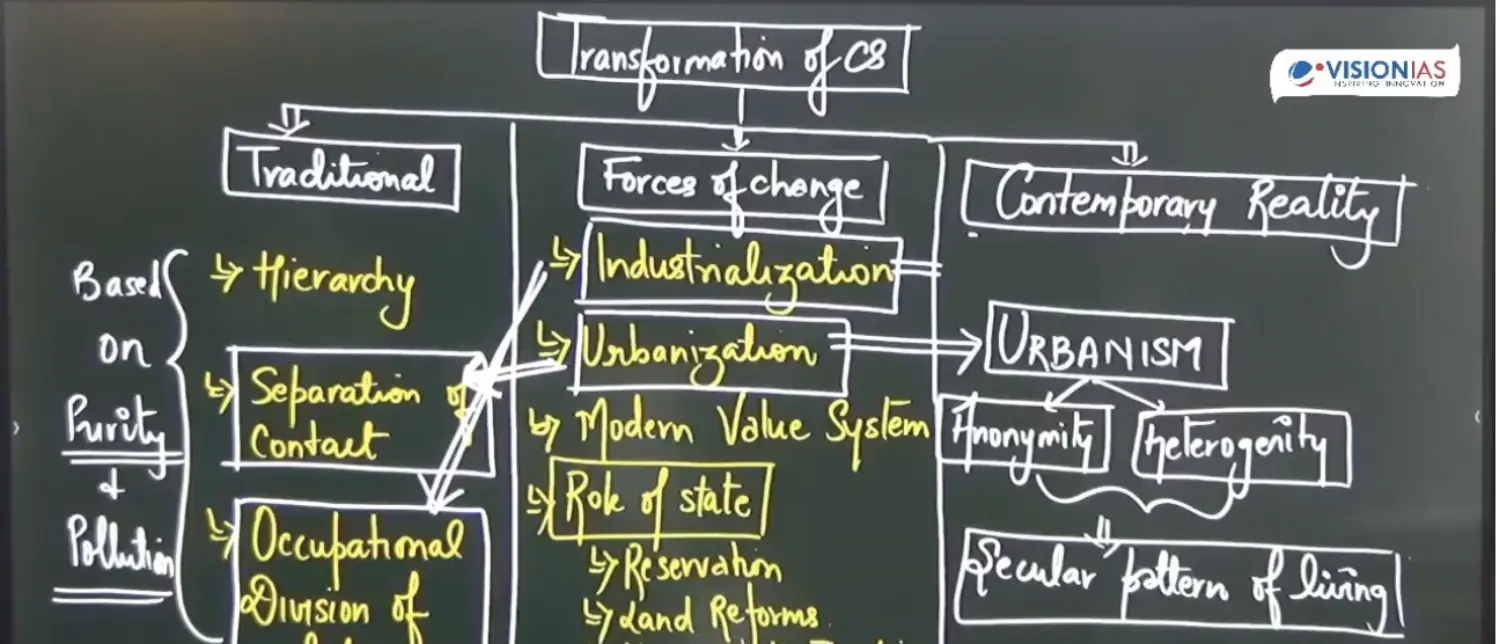 Transformation of CS
VISIONIAS
INSPIRING INNOVATION
Traditional
Based
on
Purity
&
Pollution
↳ Hierarchy
↳ Separation of
Contact
↳ Occupational
Division of
Forces of change
↳ Industrialization
↳ Urbanization
↳ Modern Value System
↳ Role of state
↳ Reservation
↳ Land Reforms
Contemporary Reality
URBANISM
Anonymity
heterogenity
Secular pattern of living